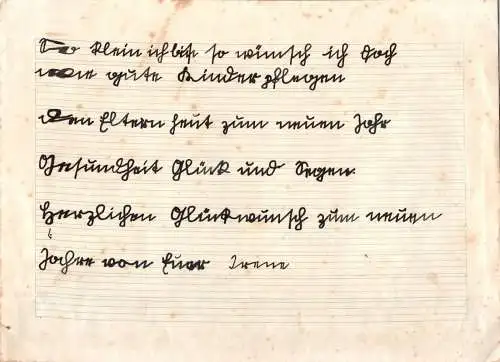 So klein ich bin so wünsch ich doch
wie gute Kinder pflegen
den Eltern heut zum neuen Jahr
Gesundheit Glück und Segen.
Herzlichen Glückwunsch zum neuen
Jahre von Euer Irene